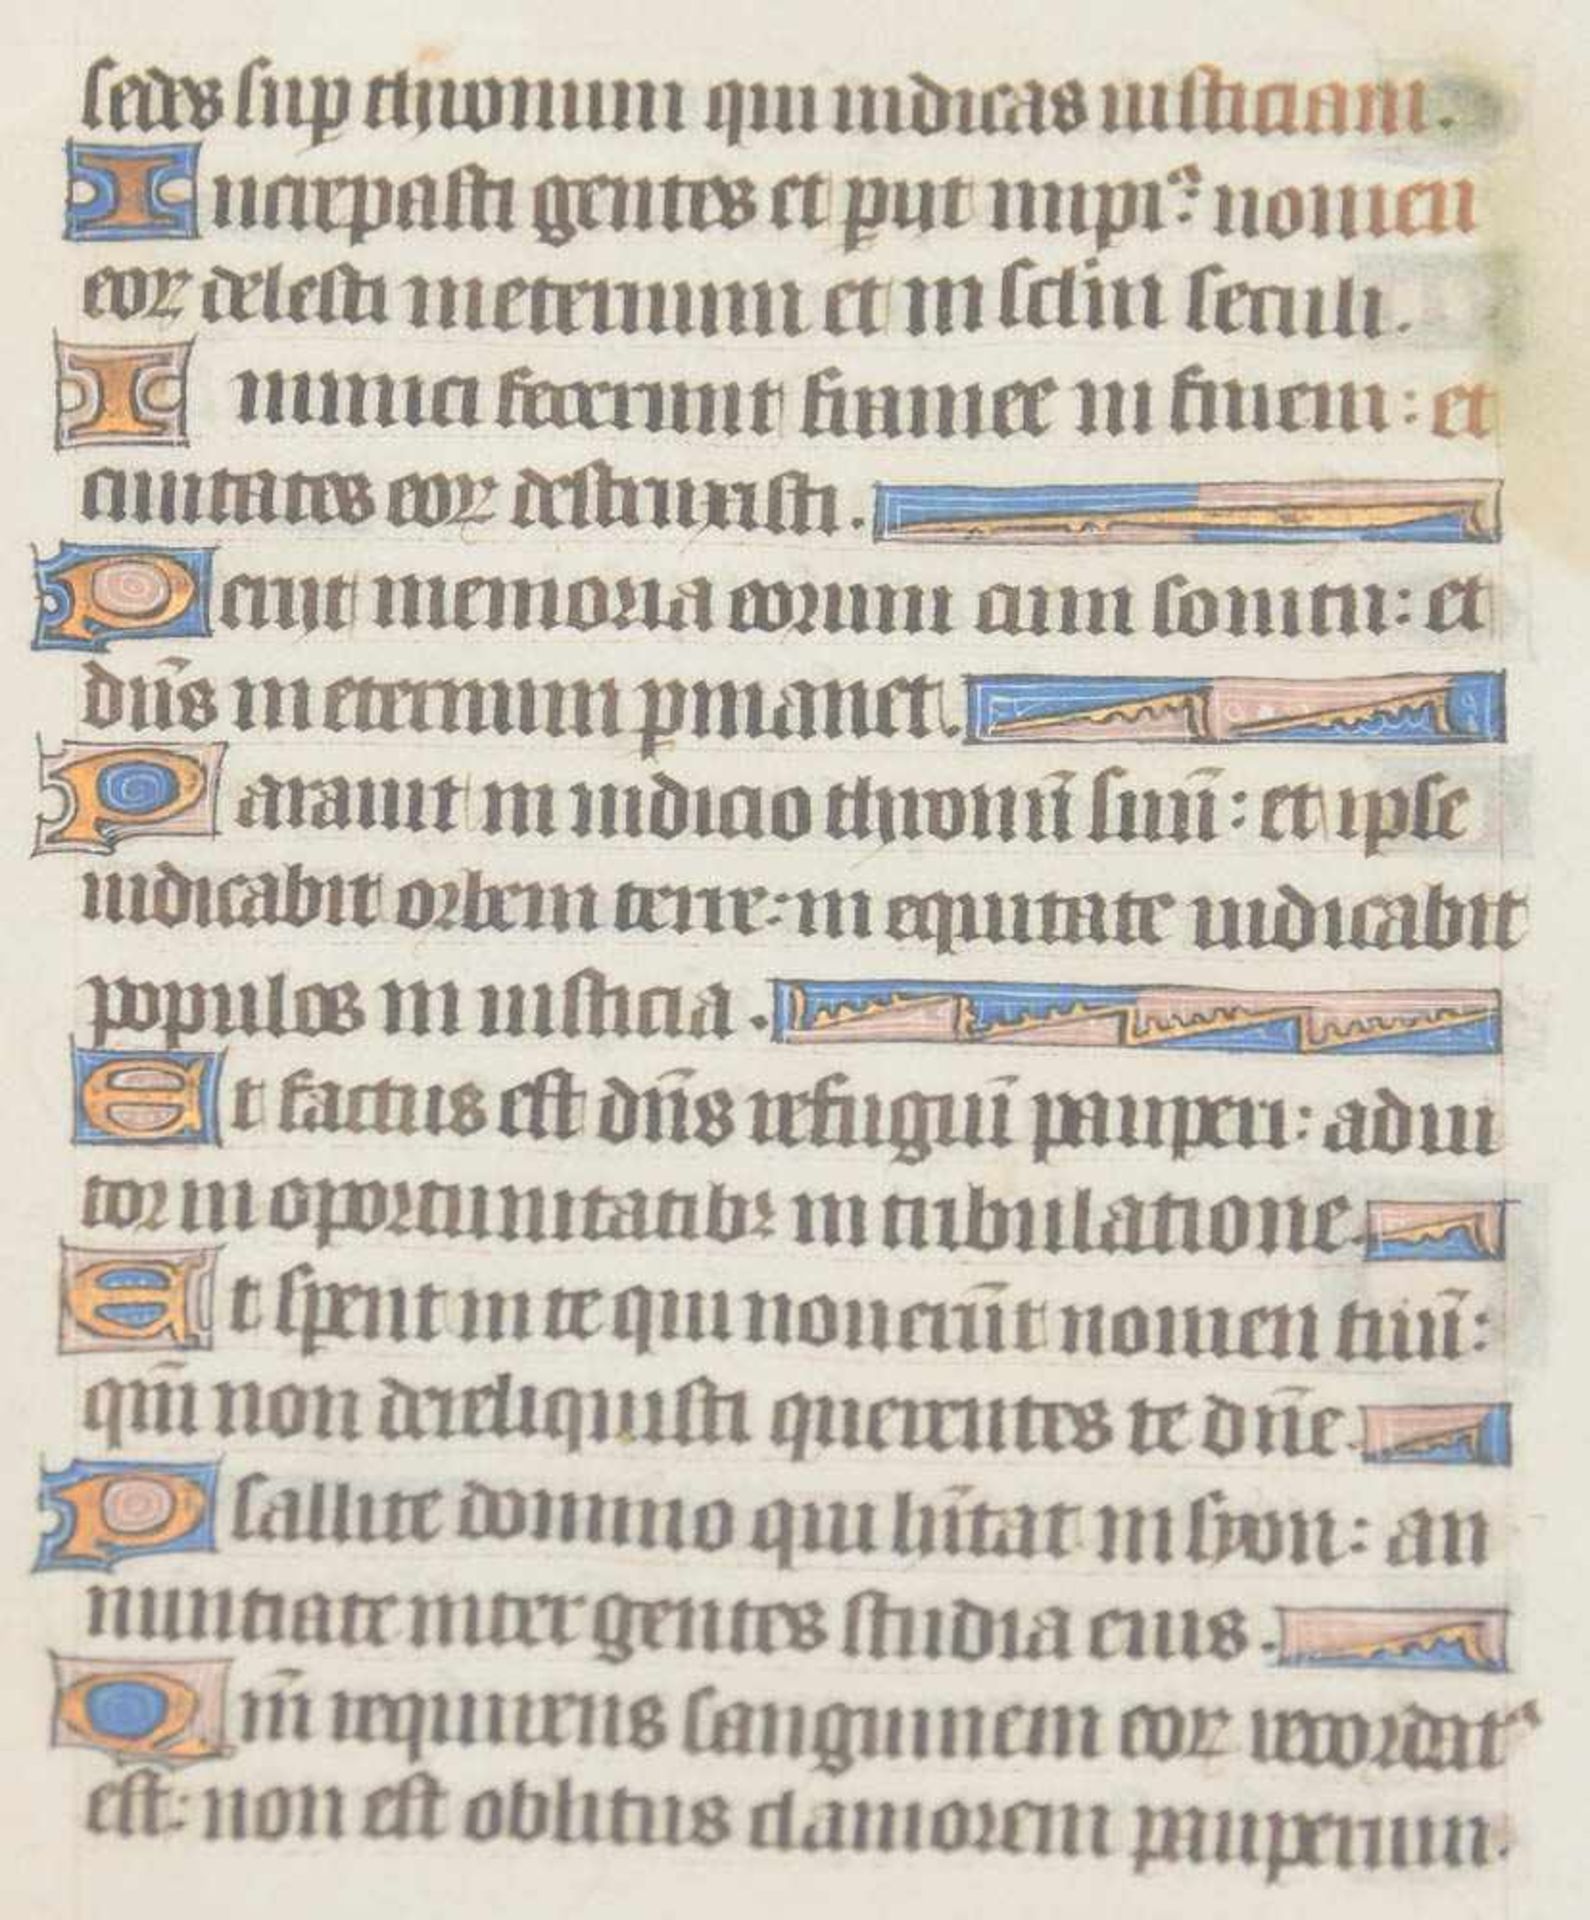 sedes sup thronum qui iudicas iusticiam.
Increpasti gentes et p̱iit impiꝰ: nomen
eoꝝ delesti in eternum et in sclm̄ seculi.
Inimici defecerunt framee in finem: et
ciuitates eoꝝ destruxisti.
Periit memoria eorum cum sonitu: et
dn̄s in eternum ꝑmanet.
Parauit in iudicio thronū suū: et ipse
iudicabit orbem terre: in equitate iudicabit
populos in iusticia.
Et factus est dn̄s refugiū pauperi: adiu
tor in oportunitatibꝫ in tribulatione.
Et sperent in te qui nouerūt nomen tuū:
qm̄ non dereliquisti querentes te dn̄e.
Psallite domino qui hītat in syon: an
nuntiate inter gentes studia eius.
Qm̄ requirens sanguinem eoꝝ recordatꝰ
est: non est oblitus clamorem pauperum.